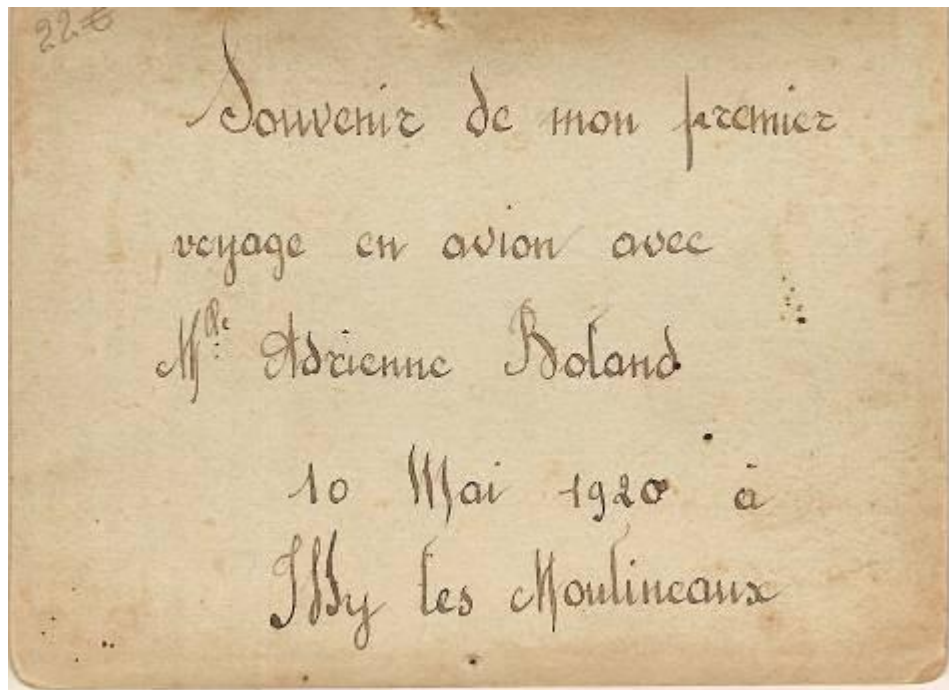 22 €
Souvenir de mon premier
voyage en avion avec
Mlle Adrienne Boland
10 Mai 1920 à
Issy les Moulineaux